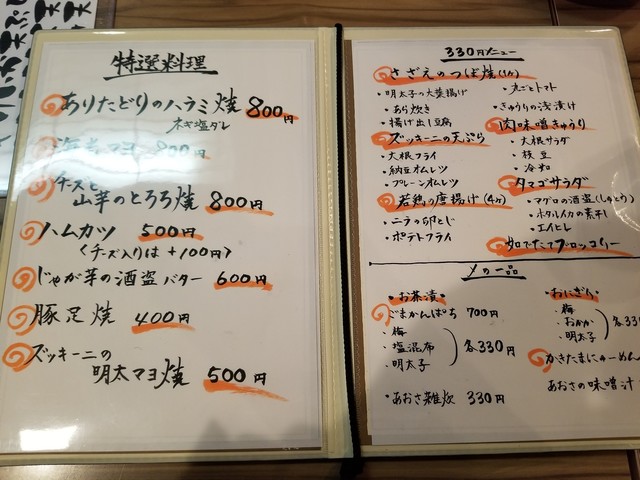 特選料理
ありたどりのハラミ焼 800円
ネギ塩ダレ
海老マヨ 800円
チーズと
山芋のとろろ焼 800円
ハムカツ 500円
〈チーズ入りは +100円〉
じゃが芋の酒盗バター 600円
豚足焼 400円
ズッキーニの
明太マヨ焼 500円
330円メニュー
さざえのつぼ焼(1ヶ)
・明太子の大葉揚げ
・あら炊き
・揚げ出し豆腐
ズッキーニの天ぷら
・大根フライ
・納豆オムレツ
・プレーンオムレツ
若鶏の唐揚げ(4ヶ)
・ニラの卵とじ
・ポテトフライ
・丸ごとトマト
・きゅうりの浅漬け
肉味噌きゅうり
・大根サラダ
・枝豆
・冷奴
タマゴサラダ
・マグロの酒盗(しゅとう)
・ホタルイカの素干し
・エイヒレ
茹でたてブロッコリー
〆の一品
・お茶漬
ごまかんぱち 700円
・梅
・塩混布
・明太子
各330円
・あおさ雑炊 330円
・おにぎり
・梅
・おかか
・明太子
各33
かきたまにゅーめん
あおさの味噌汁